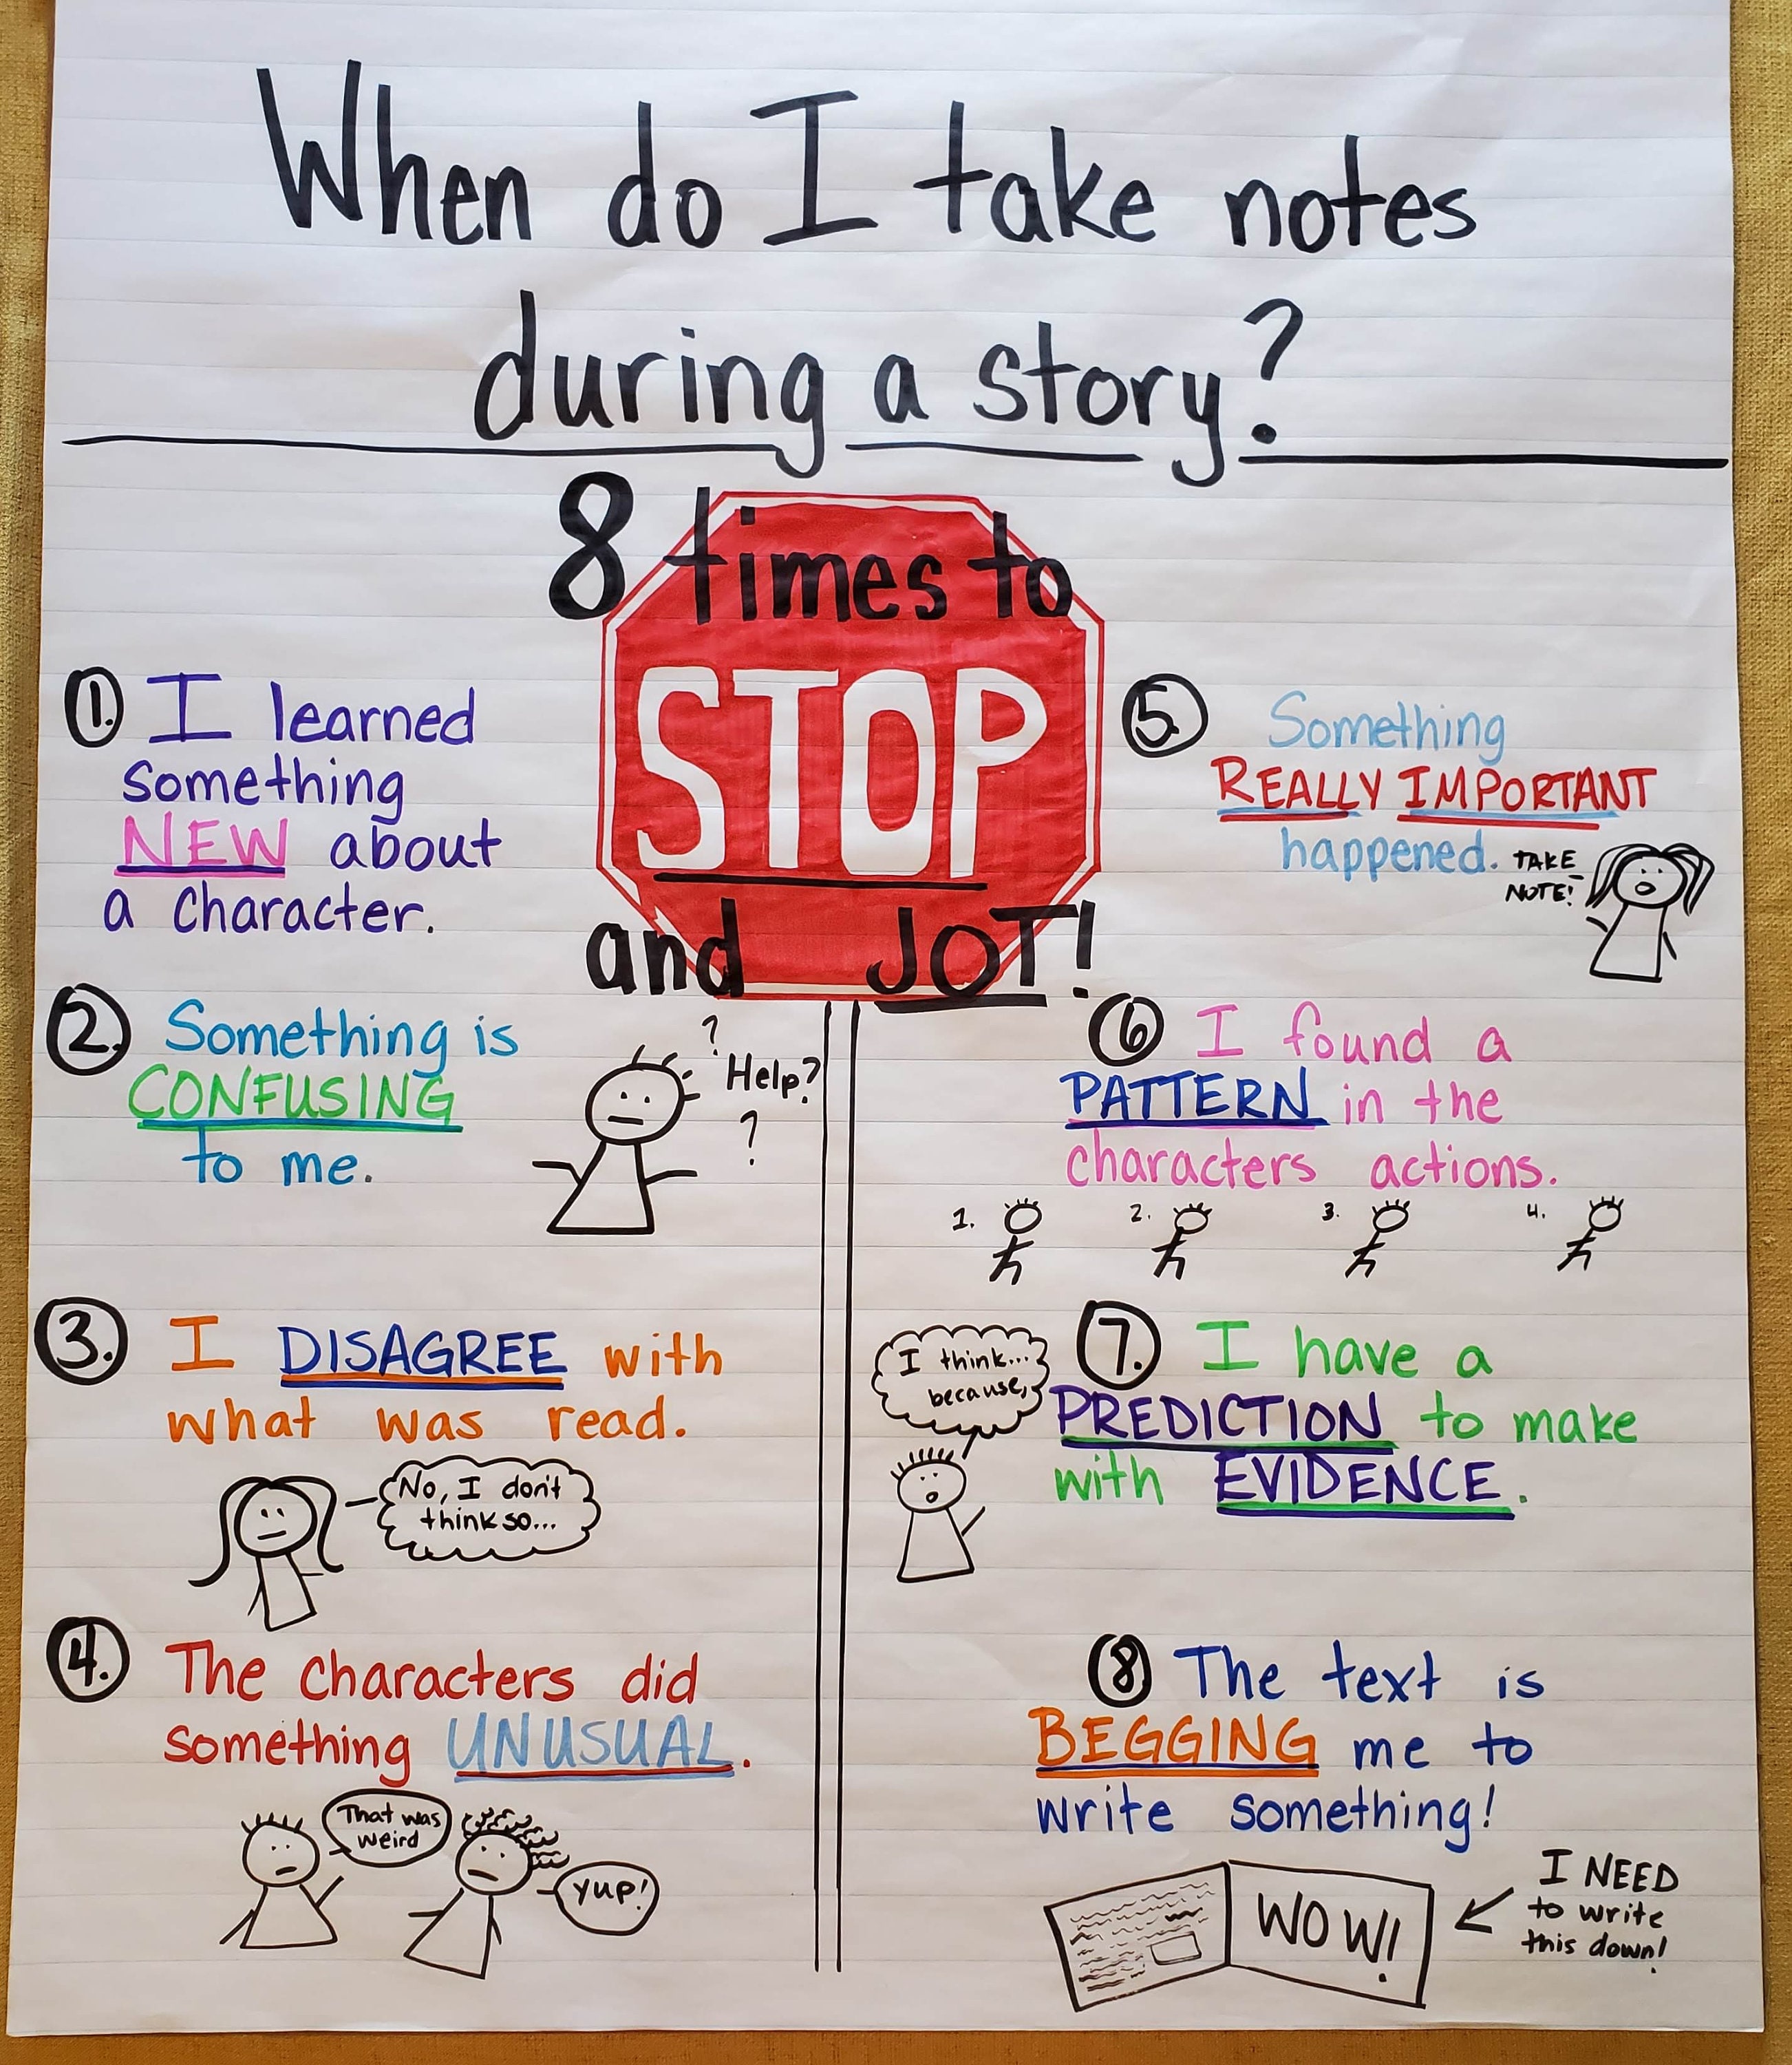 When do I take notes
during a story?
8 times to
STOP
and JOT!
1. I learned
something
NEW about
a character.
2. Something is
CONFUSING
to me.
?
Help?
?
3. I DISAGREE with
what was read.
No, I don't
think so...
4. The characters did
something UNUSUAL.
That was
weird
yup!
5. Something
REALLY IMPORTANT
happened.
TAKE
NOTE!
6 I found a
PATTERN in the
characters actions.
1. 2. 3. 4.
I think...
because,
7. I have a
PREDICTION to make
with EVIDENCE.
8 The text is
BEGGING me to
write something!
WOW!
I NEED
to write
this down!